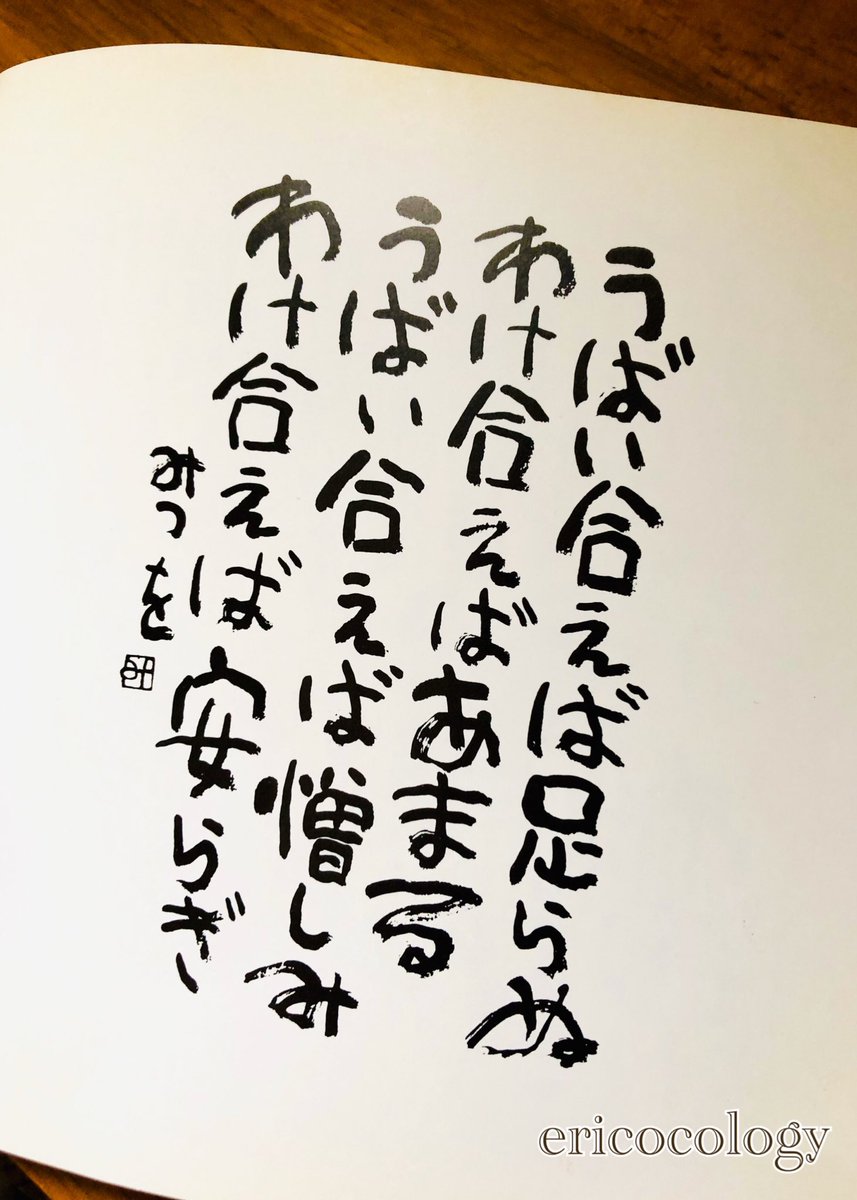 うばい合えば足らぬ
わけ合えばあまる
うばい合えば憎しみ
わけ合えば安らぎ
みつを
ericocology